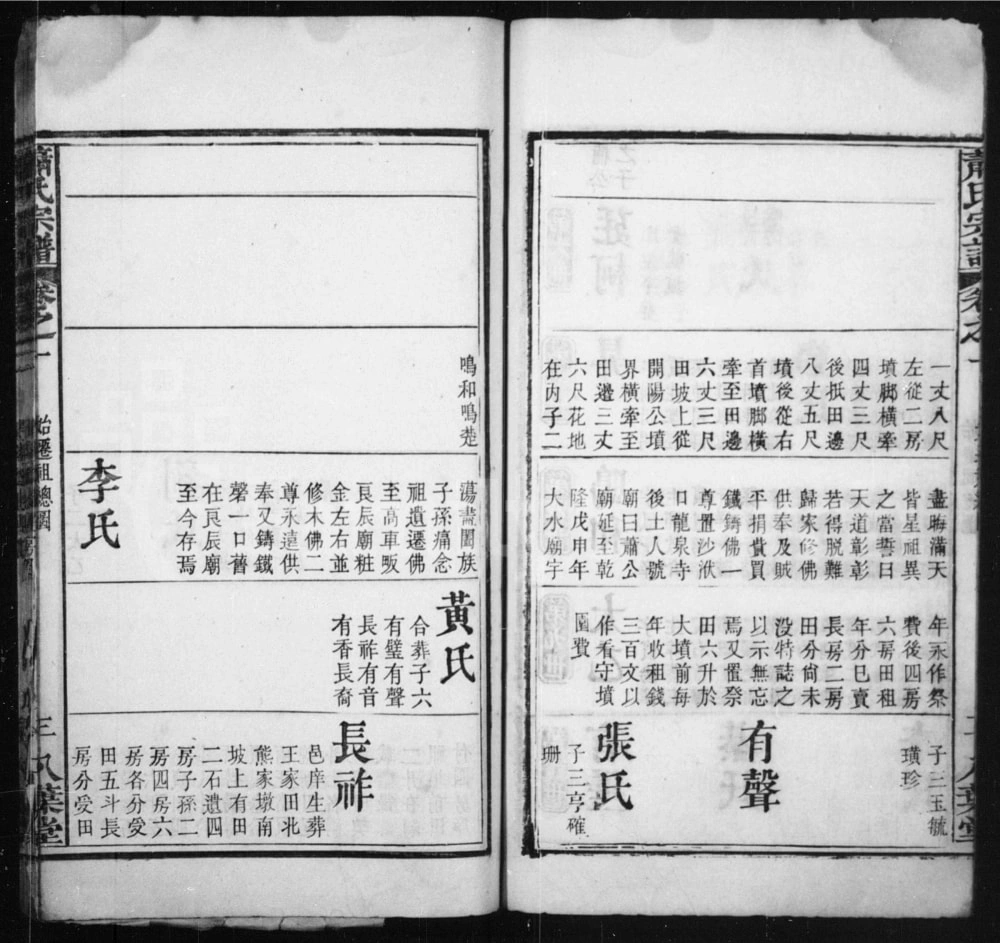 蕭氏宗譜
卷之一
一丈八尺
左從二房
墳脚橫牽
四丈三尺
後抵田邊
八丈五尺
墳後從右
首墳脚橫
牽至田邊
六丈三尺
田坡上從
開陽公墳
界橫牽至
田邊三丈
六尺花地
在内子二
盡晦滿天
皆星祖異
之當誓曰
天道彰彰
若得脫難
歸家修佛
供奉及賊
平捐貲買
鐵鑄佛一
尊置沙洑
口龍泉寺
後土人號
廟曰蕭公
廟延至乾
隆戊申年
大水廟宇
年永作祭
費後四房
六房田租
年分已賣
長房二房
田分尙未
没特誌之
以示無忘
焉又置祭
田六升於
大墳前每
年收租錢
三百文以
作看守墳
園費
子三玉毓
璜珍
有聲
張氏
子三亨確
珊
八葉堂
鳴和鳴楚
蕩盡闔族
子孫痛念
祖遺遷佛
至高車畈
艮辰廟粧
金左右並
修木佛二
尊永遠供
奉又鑄鐵
磬一口舊
在艮辰廟
至今存焉
李氏
黃氏
合葬子六
有璧有聲
長祚有音
有香長裔
長祚
邑庠生葬
王家田北
熊家墩南
坡上有田
二石遺四
房子孫二
房四房六
房各分受
田五斗長
房分受田
蕭氏宗譜
卷之一
始遷祖總圖
三
八葉堂